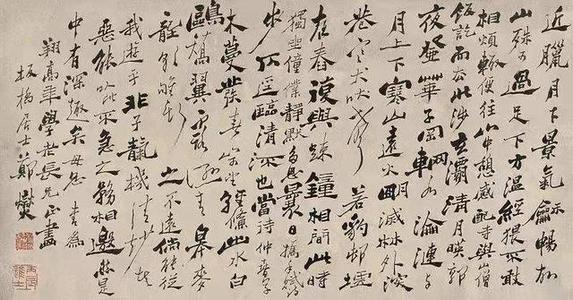 近臘月下景氣龢暢故
山殊可過足下方溫經猥不敢
相煩輒便往山中憩感配寺與山僧
飯訖而去北涉玄灞清月映郭
夜登華子岡輞水淪漣與
月上下寒山遠火明滅林外深
巷寒犬吠聲若豹邨墟
夜舂復與疎鐘相間此時
獨坐僮僕靜默多思曩日攜手賦詩
步仄逕臨清流也當待仲春草
木蔓發春山可望輕鯈出水白
鷗矯翼露溼青皋麥
隴朝雊斯之不遠倘能從
我遊乎非子機清妙者
惡能以此不急之務相邀然是
中有深趣矣毋忽 書為
翔高年學老長兄正
板橋居士鄭燮